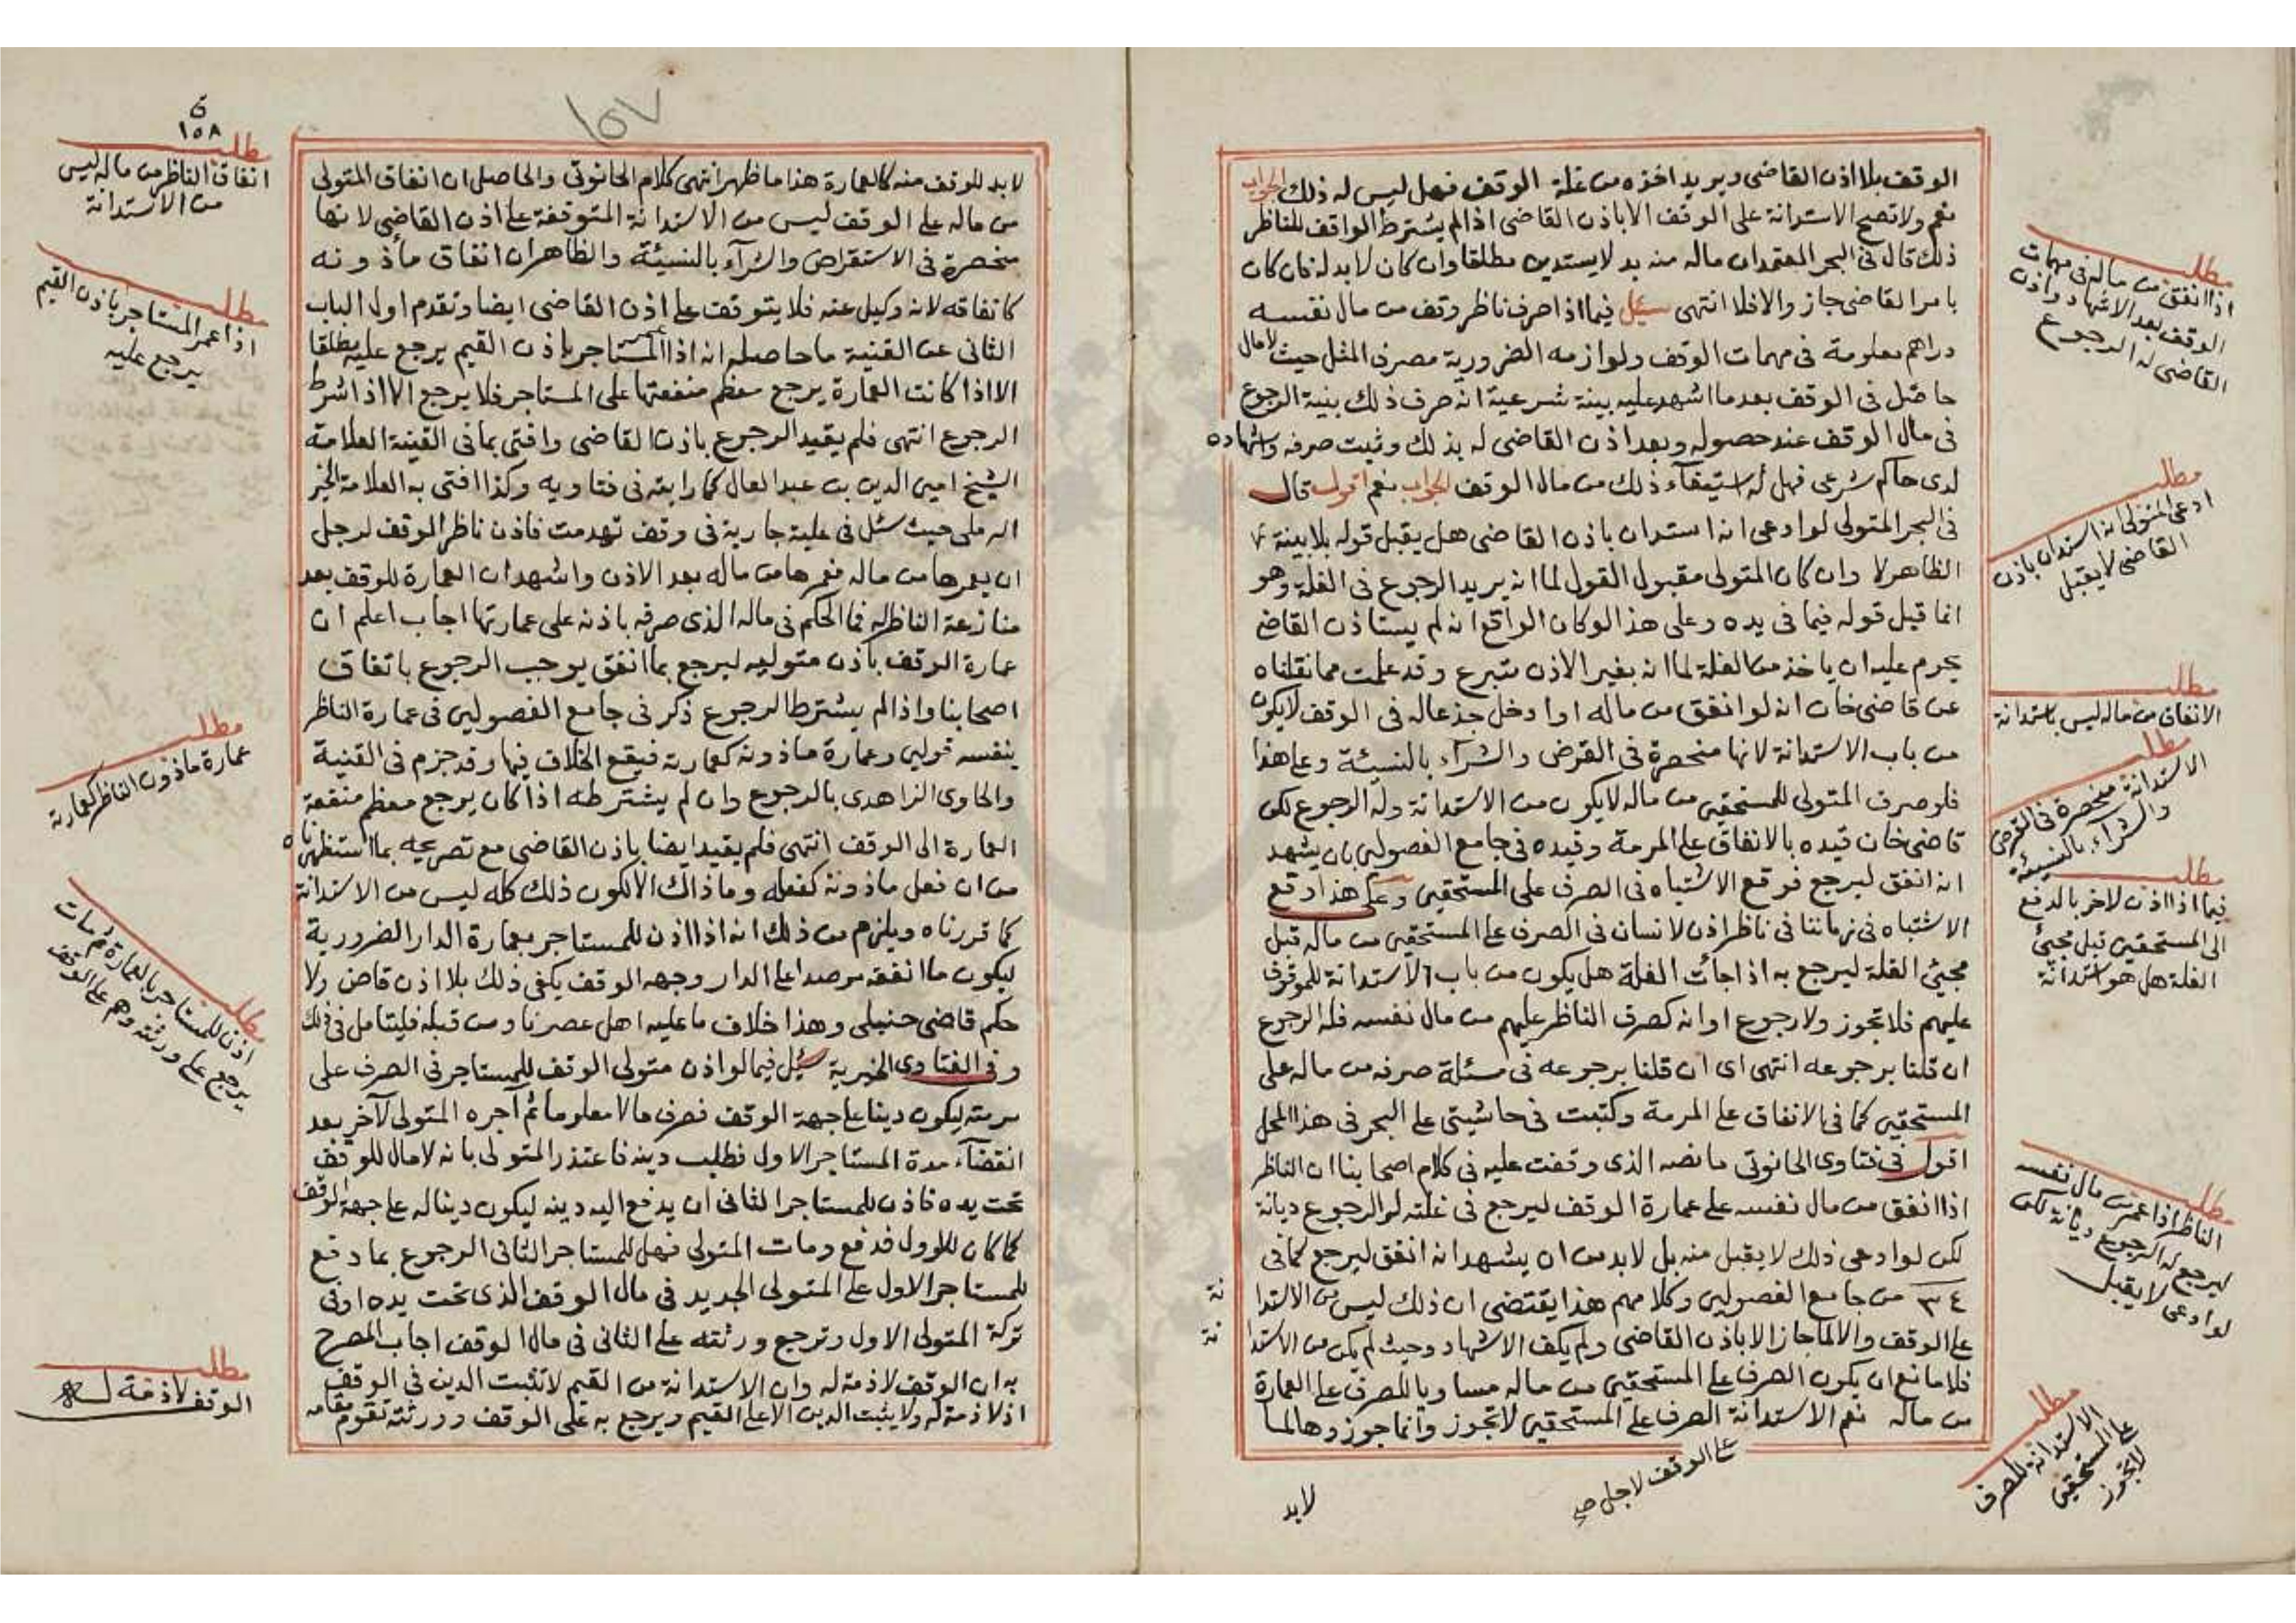 الوقف بلا اذن القاضي ويريد اخذه من غلة الوقف فهل ليس له ذلك الجواب
نعم ولا تصح الاستدانة على الوقف الا باذن القاضي اذا لم يشترط الواقف للناظر
ذلك قال في البحر المعتمد ان ماله منه بد لا يستدين مطلقا وان كان لا بد له فان كان
بامر القاضي جاز والا فلا انتهى سئل فيما اذا صرف ناظر وقف من مال نفسه
دراهم معلومة في مهمات الوقف ولوازمه الضرورية مصرف المثل حيث لا مال
حاصل في الوقف بعد ما اشهد عليه بينة شرعية انه صرف ذلك بنية الرجوع
في مال الوقف عند حصوله وبعد اذن القاضي له بذلك وثبت صرفه واشهاده
لدى حاكم شرعي فهل له استيفاء ذلك من مال الوقف الجواب نعم اقول قال
في البحر المتولي لو ادعى انه استدان باذن القاضي هل يقبل قوله بلا بينة
الظاهر لا وان كان المتولي مقبول القول لما انه يريد الرجوع في الغلة وهو
انما قبل قوله فيما في يده وعلى هذا لو كان الواقع انه لم يستاذن القاضي
يحرم عليه ان ياخذ من الغلة لما انه بغير الاذن متبرع وقد علمت مما نقلناه
عن قاضي خان انه لو انفق من ماله او ادخل جذعا له في الوقف لا يكون
من باب الاستدانة لانها منحصرة في القرض والشراء بالنسيئة وعلى هذا
فلو صرف المتولي للمستحقين من ماله لا يكون من الاستدانة وله الرجوع لكن
قاضي خان قيده بالانفاق على المرمة وقيده في جامع الفصولين بان يشهد
انه انفق ليرجع فوقع الاشتباه في الصرف على المستحقين وعلى هذا وقع
الاشتباه في زماننا في ناظر اذن لانسان في الصرف على المستحقين من ماله قبل
مجيئ الغلة ليرجع به اذا جأت الغلة هل يكون من باب الاستدانة للموقوف
عليهم فلا تجوز ولا رجوع او انه كصرف الناظر عليهم من مال نفسه فله الرجوع
ان قلنا برجوعه انتهى اى ان قلنا برجوعه في مسئلة صرفه من ماله على
المستحقين كما في الانفاق على المرمة وكتبت في حاشيتي على البحر في هذا المحل
اقول في فتاوى الحانوتي ما نصه الذي وقفت عليه في كلام اصحابنا ان الناظر
اذا انفق من مال نفسه على عمارة الوقف ليرجع في غلته له الرجوع ديانة
لكن لو ادعى ذلك لا يقبل منه بل لا بد من ان يشهد انه انفق ليرجع كما في
٣٤ من جامع الفصولين وكلامهم هذا يقتضي ان ذلك ليس من الاستدا نة
على الوقف والا لما جاز الا باذن القاضي ولم يكف الاشهاد وحيث لم يكن من الاستدا نة
فلا مانع ان يكون الصرف على المستحقين من ماله مساويا للصرف على العمارة
من ماله نعم الاستدانة لصرف على المستحقين لا تجوز وانما جوزوها لما
على الوقف لاجل صح
لابد
مطلب
اذا انفق من ماله في مهمات
الوقف بعد الاشهاد واذن
القاضي له الرجوع
مطلب
ادعى المتولي انه استدان باذن
القاضي لا يقبل
مطلب
الانفاق من ماله ليس باستدانة
مطلب
الاستدانة منحصرة في القرض
والشراء بالنسيئة
مطلب
فيما اذا اذن لاخر بالدفع
الى المستحقين قبل مجيئ
الغلة هل هو استدانة
مطلب
الناظر اذا عمر من مال نفسه
ليرجع له الرجوع ديانة لكن
لو ادعى لا يقبل
مطلب
الاستدانة للصرف
على المستحقين
لا تجوز
١٥٧
١٥٨
لابد للوقف منه كالعمارة هذا ما ظهر انتهى كلام الحانوتي والحاصل ان انفاق المتولي
من ماله على الوقف ليس من الاستدانة المتوقفة على اذن القاضي لانها
منحصرة في الاستقراض والشرآء بالنسيئة والظاهر ان انفاق مأذونه
كانفاقه لانه وكيل عنه فلا يتوقف على اذن القاضي ايضا وتقدم اول الباب
الثاني عن القنية ما حاصله انه اذا عمر المستاجر باذن القيم يرجع عليه مطلقا
الا اذا كانت العمارة يرجع معظم منفعتها على المستاجر فلا يرجع الا اذا شرط
الرجوع انتهى فلم يقيد الرجوع باذن القاضي وافتى بما في القنية العلامة
الشيخ امين الدين بن عبد العال كما رايته في فتاويه وكذا افتى به العلامة الخير
الرملي حيث سئل في علية جارية في وقف تهدمت فاذن ناظر الوقف لرجل
ان يعمرها من ماله فعمرها من ماله بعد الاذن واشهد ان العمارة للوقف بعد
منازعة الناظر له فما الحكم في ماله الذي صرفه باذنه على عمارتها اجاب اعلم ان
عمارة الوقف باذن متوليه ليرجع بما انفق يوجب الرجوع باتفاق
اصحابنا واذا لم يشترط الرجوع ذكر في جامع الفصولين في عمارة الناظر
بنفسه قولين وعمارة ماذونه كعمارته فيقع الخلاف فيها وقد جزم في القنية
والحاوى الزاهدى بالرجوع وان لم يشترطه اذا كان يرجع معظم منفعة
العمارة الى الوقف انتهى فلم يقيد ايضا باذن القاضي مع تصريحه بما استظهرناه
من ان فعل ماذونه كفعله وما ذاك الا لكون ذلك كله ليس من الاستدانة
كما قررناه ويلزم من ذلك انه اذا اذن للمستاجر بعمارة الدار الضرورية
ليكون ما انفقه مرصدا على الدار وجهه الوقف يكفي ذلك بلا اذن قاض ولا
حكم قاضي حنبلي وهذا خلاف ما عليه اهل عصرنا ومن قبله فليتامل في ذلك
وفي الفتاوى الخيرية سئل فيما لو اذن متولي الوقف للمستاجر في الصرف على
مرمته ليكون دينا على جهة الوقف فصرف مالا معلوما ثم آجره المتولي لآخر بعد
انقضآء مدة المستاجر الاول فطلب دينه فاعتذر المتولي بانه لا مال للوقف
تحت يده فاذن للمستاجر الثاني ان يدفع اليه دينه ليكون دينا له على جهة الوقف
كما كان للاول فدفع ومات المتولي فهل للمستاجر الثاني الرجوع بما دفع
للمستاجر الاول على المتولي الجديد في مال الوقف الذي تحت يده او في
تركة المتولي الاول وترجع ورثته على الثاني في مال الوقف اجاب المصرح
به ان الوقف لا ذمة له وان الاستدانة من القيم لا تثبت الدين في الوقف
اذ لا ذمة له ولا يثبت الدين الا على القيم ويرجع به على الوقف وورثته تقوم مقامه
مطلب
انفاق الناظر من ماله ليس
من الاستدانة
مطلب
اذا عمر المستاجر باذن القيم
يرجع عليه
مطلب
عمارة ماذون الناظر كعمارته
مطلب
اذن للمستاجر بالعمارة ومات
يرجع على ورثته وهم على الوقف
مطلب
الوقف لا ذمة له